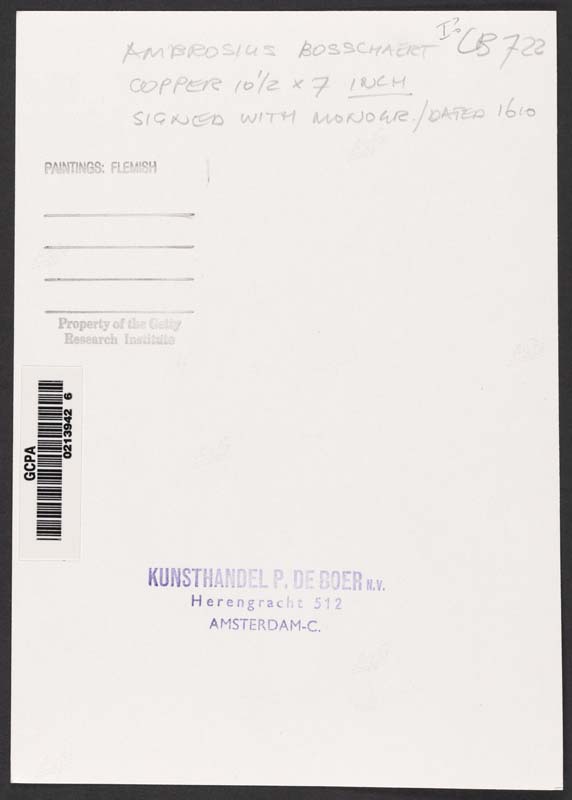 AMBROSIUS BOSSCHAERT I? CB 722
COPPER 10 1/2 x 7 INCH
SIGNED WITH MONOGR./DATED 1610
PAINTINGS: FLEMISH
Property of the Getty
Research Institute
GCPA
0213942 6
KUNSTHANDEL P. DE BOER N.V.
Herengracht 512
AMSTERDAM-C.